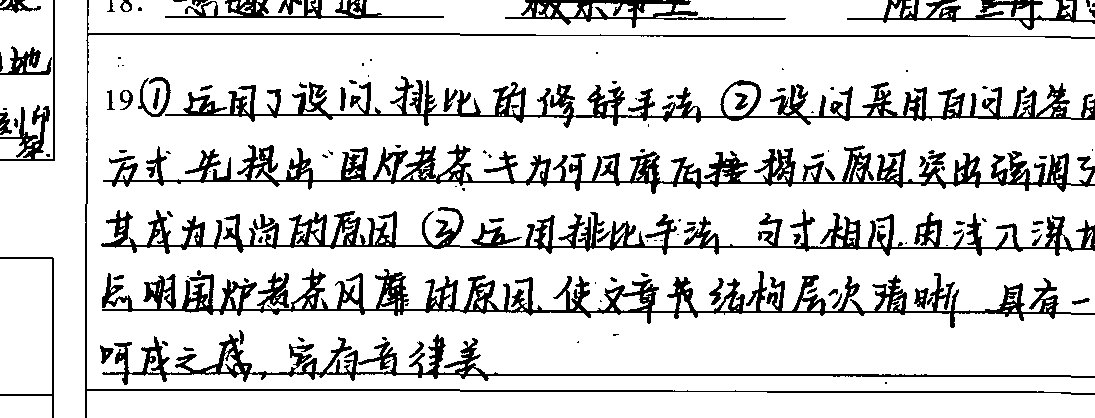 18. 意趣相通
地
刻印
19.①运用了设问、排比的修辞手法 ②设问采用自问自答
方式.先提出"围炉煮茶"为何风靡后接揭示原因.突出强调了
其成为风尚的原因 ③运用排比手法.句式相同.由浅入深地
点明围炉煮茶风靡的原因.使文章节结构层次清晰 具有一
呵成之感,富有音律美